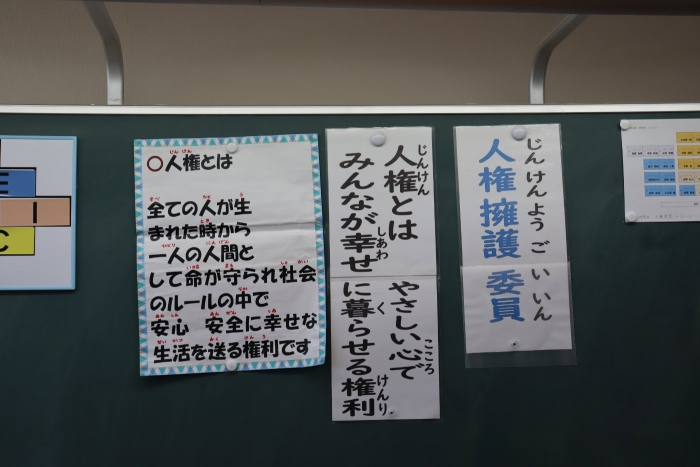 〇人権とは
全ての人が生
まれた時から
一人の人間と
して命が守られ社会
のルールの中で
安心 安全に幸せな
生活を送る権利です
人権とは やさしい心で
みんなが幸せに暮らせる権利
じんけん
しあわ
こころ
く
けんり
人権擁護委員
じんけんようごいいん
E
I
C